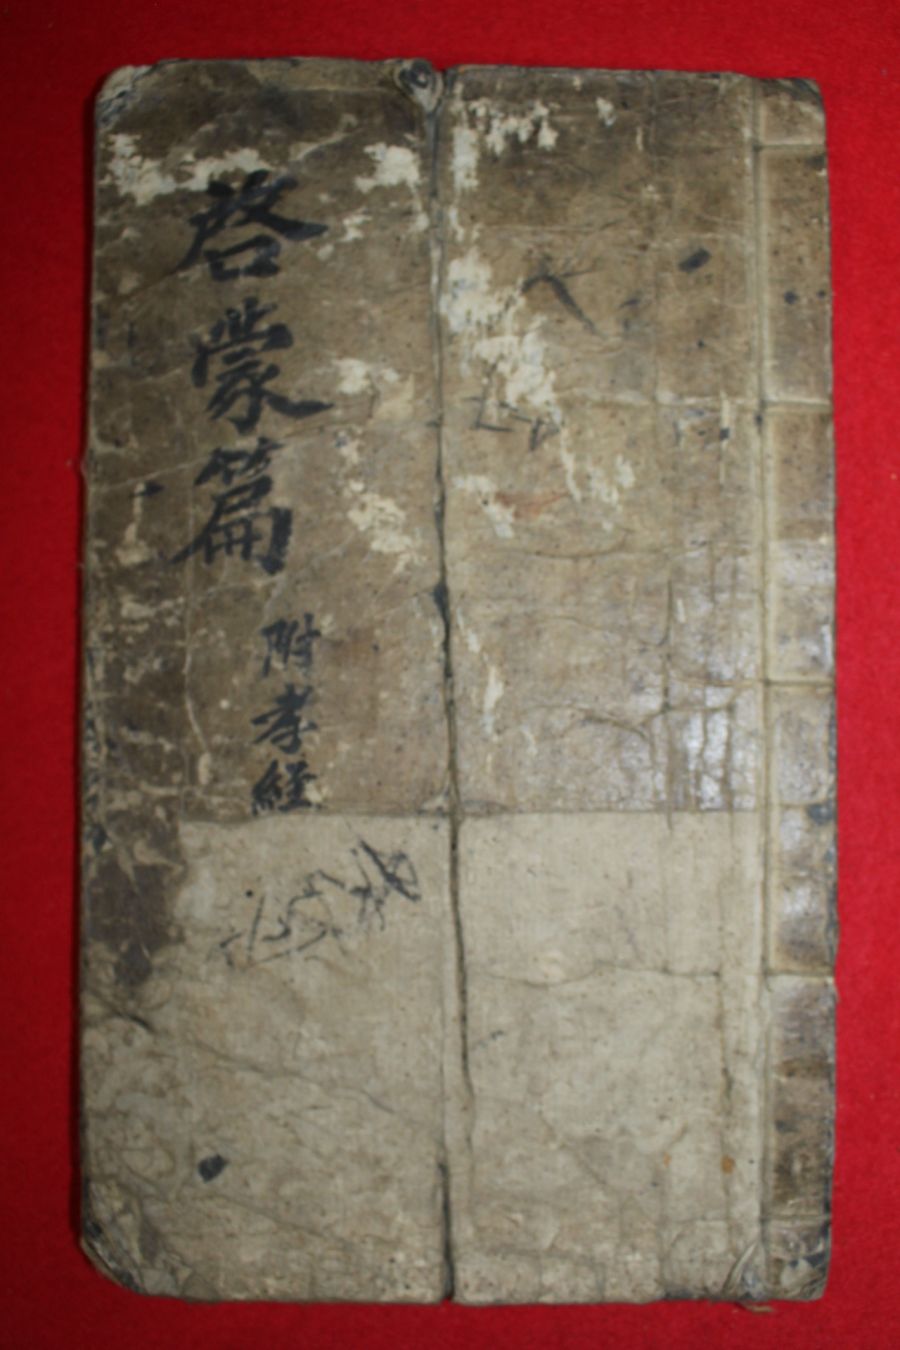 啓蒙篇
附孝経